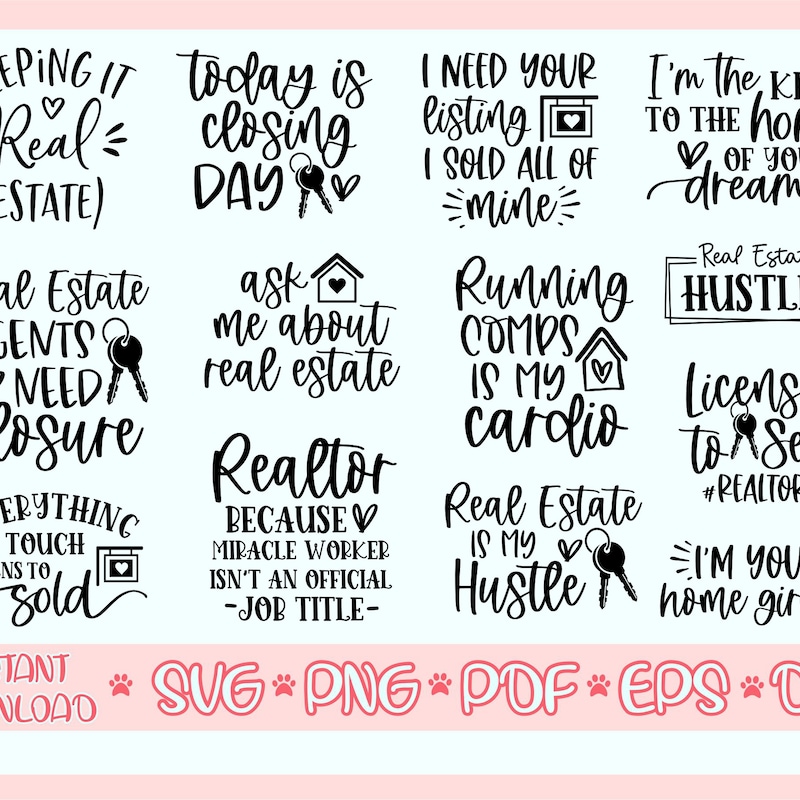 EPING IT
Real
ESTATE)
today is
closing
DAY
I NEED YOUR
listing
I SOLD ALL OF
mine
I'm the KE
TO THE hom
OF YOU
dream
al Estate
GENTS
NEED
losure
ask
me about
real estate
Running
COMPS
IS MY
cardio
Real Estat
HUSTL
Licens
to Se
#REALTOR
ERYTHING
TOUCH
NS TO
sold
Realtor
BECAUSE
MIRACLE WORKER
ISN'T AN OFFICIAL
-JOB TITLE-
Real Estate
IS MY
Hustle
I'M YOU
home gir
TANT
NLOAD
SVG PNG PDF EPS D